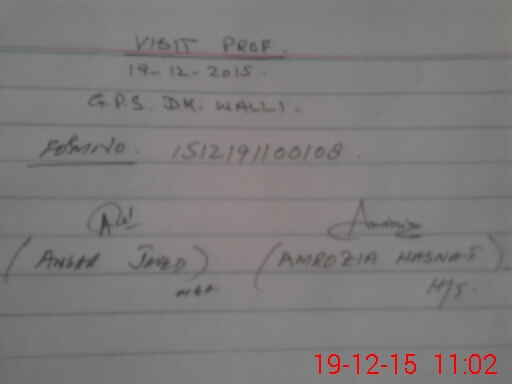 VISIT PROF.
19-12-2015.
G.P.S. DK. WALLI.
FORM NO. 1512191100108.
(ANSAR JAVED) (AMROZIA HASNAT)
MEA H/T.
19-12-15 11:02